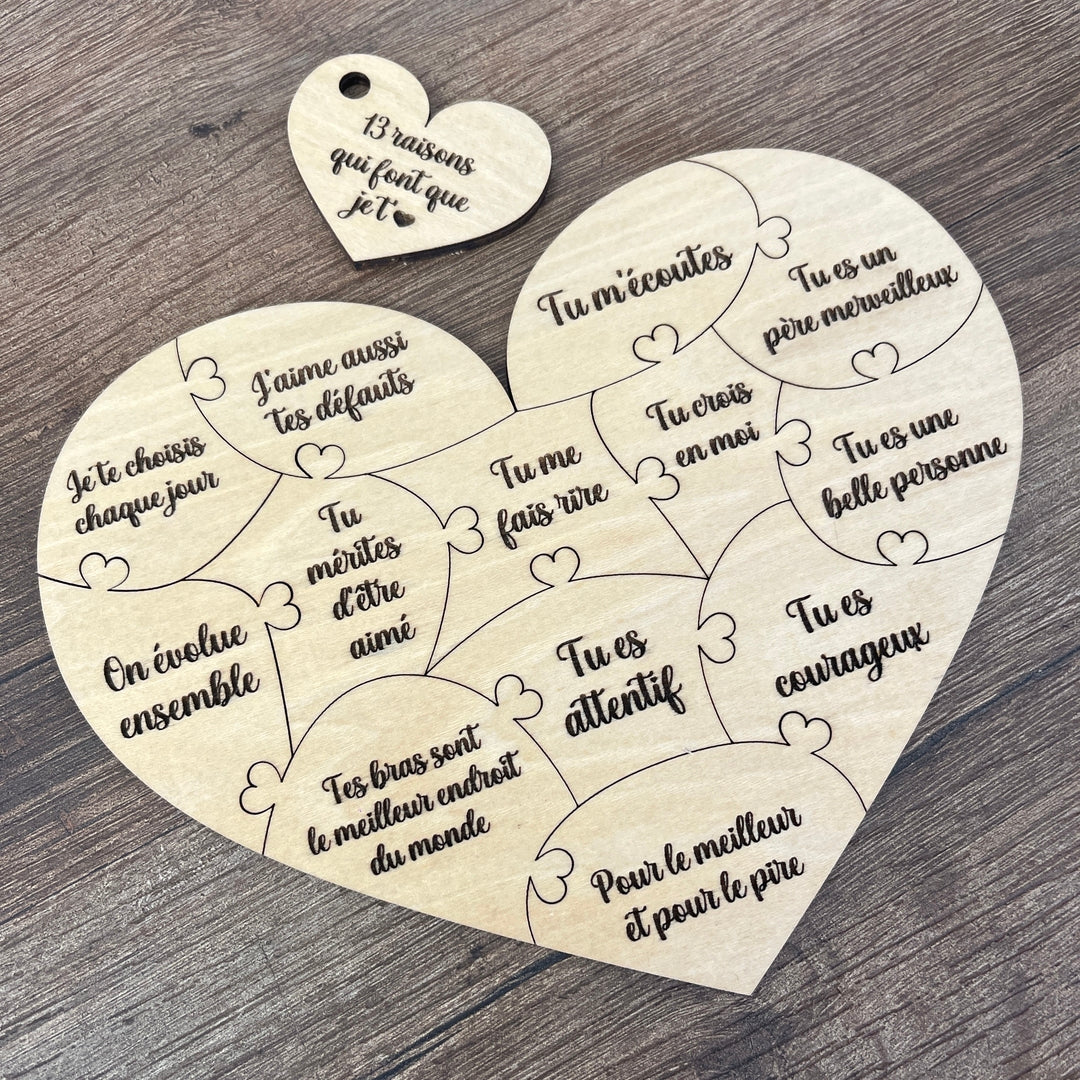 13 raisons
qui font que
je t'♥
Tu m'écoutes
Tu es un
père merveilleux
J'aime aussi
tes défauts
Tu crois
en moi
Je te choisis
chaque jour
Tu me
fais rire
Tu es une
belle personne
Tu
mérites
d'être
aimé
On évolue
ensemble
Tu es
attentif
Tu es
courageux
Tes bras sont
le meilleur endroit
du monde
Pour le meilleur
et pour le pire